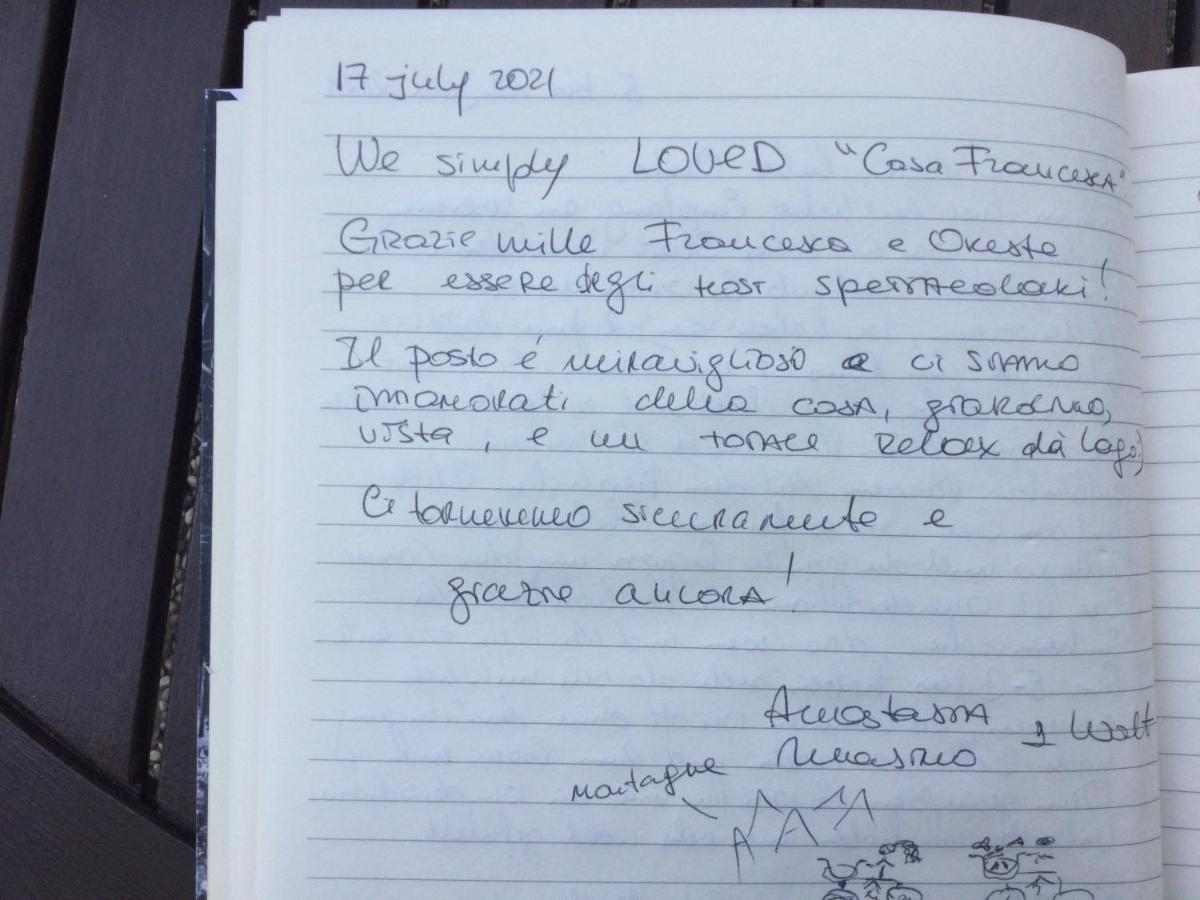 17 july 2021
We simply LOVED "Casa Francesca"
Grazie mille Francesca e Oreste
per essere degli host spettacolari!
Il posto é meraviglioso e ci siamo
innamorati della casa, giardino,
vista, e un totale relax dà lago:)
Ci torneremo sicuramente e
grazie ancora!
Anastasia
Massimo
montagne